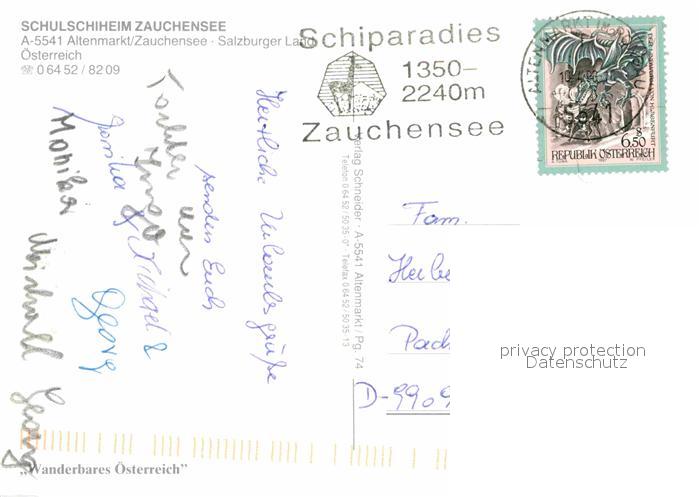 SCHULSCHIHEIM ZAUCHENSEE
A-5541 Altenmarkt/Zauchensee · Salzburger Land
Österreich
☏ 0 64 52 / 82 09
Schiparadies
1350–
2240m
Zauchensee
ALTENMARKT IM
5541
S 6.50
REPUBLIK ÖSTERREICH
Herzliche Urlaubsgrüße
senden Euch
Monika & Michael &
Georg
Monika
Michael
Georg
Verlag Schneider · A-5541 Altenmarkt / Pg. 74
Telefon 0 64 52 / 50 35-0* · Telefax 0 64 52 / 50 35-13
Fam.
Herbe
Pad
D-9909
privacy protection
Datenschutz
„Wanderbares Österreich”